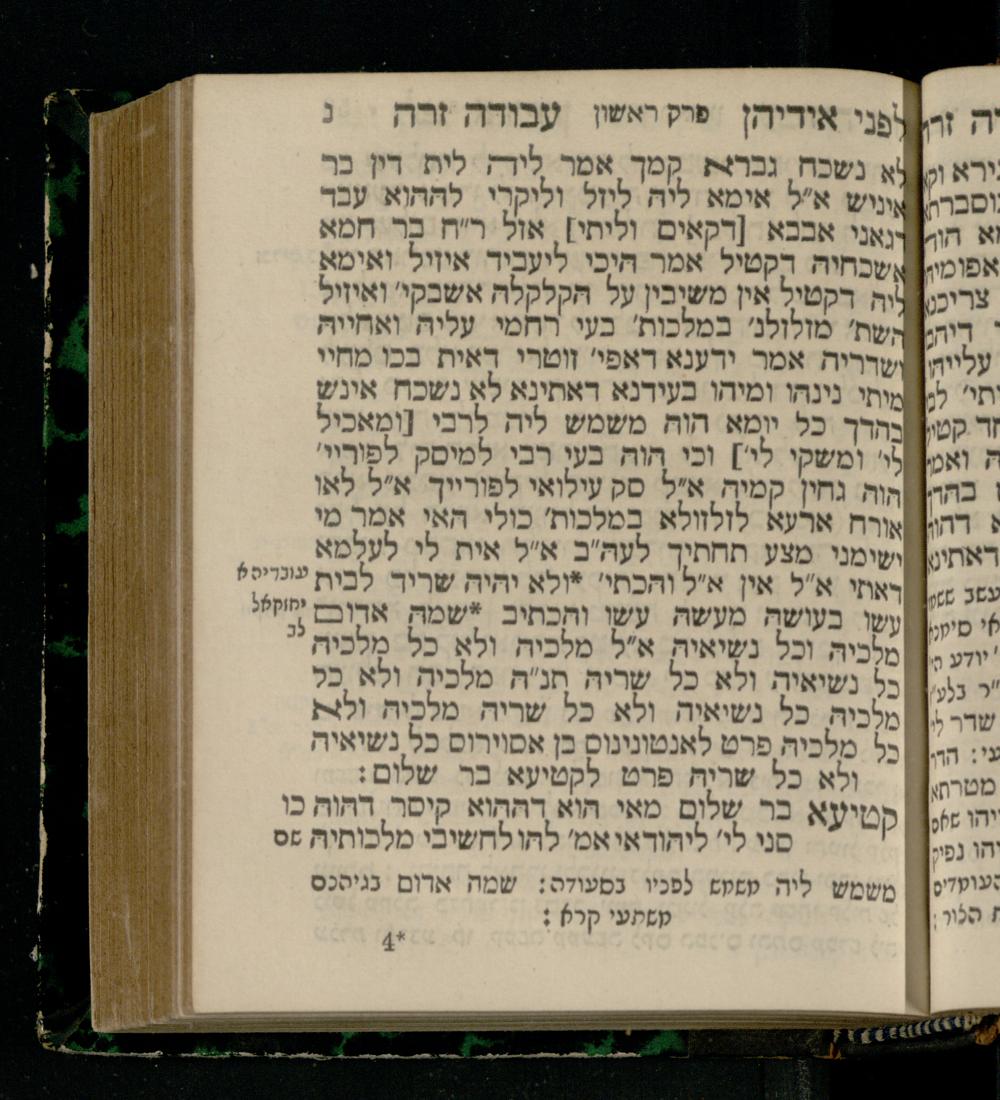 לפני אידיהן פרק ראשון עבודה זרה נ
לא נשכח גברא קמך אמר ליה לית דין בר
איניש א״ל אימא ליה ליזל וליקרי לההוא עבד
דגאני אבבא [דקאים וליתי] אזל ר״ח בר חמא
אשכחיה דקטיל אמר היכי ליעביד איזיל ואימא
ליה דקטיל אין משיבין על הקלקלה אשבקי׳ ואיזיל
השת׳ מזלזלנ׳ במלכות׳ בעי רחמי עליה ואחייה
ושדריה אמר ידענא דאפי׳ זוטרי דאית בכו מחיי
מיתי נינהו ומיהו בעידנא דאתינא לא נשכח אינש
בהדך כל יומא הוה משמש ליה לרבי [ומאכיל
לי׳ ומשקי לי׳] וכי הוה בעי רבי למיסק לפוריי׳
הוה גחין קמיה א״ל סק עילואי לפורייך א״ל לאו
אורח ארעא לזלזולא במלכות׳ כולי האי אמר מי
ישימני מצע תחתיך לעה״ב א״ל אית לי לעלמא
דאתי א״ל אין א״ל והכתי׳ *ולא יהיה שריד לבית
עובדיה א
עשו בעושה מעשה עשו והכתיב *שמה אדום
יחזקאל
לב
מלכיה וכל נשיאיה א״ל מלכיה ולא כל מלכיה
כל נשיאיה ולא כל שריה תנ״ה מלכיה ולא כל
מלכיה כל נשיאיה ולא כל שריה מלכיה ולא
כל מלכיה פרט לאנטונינוס בן אסוירוס כל נשיאיה
ולא כל שריה פרט לקטיעא בר שלום:
קטיעא בר שלום מאי הוא דההוא קיסר דהוה כו
סני לי׳ ליהודאי אמ׳ להו לחשיבי מלכותיה שס
משמש ליה שמש לפניו בסעודה: שמה אדום בגיהנס
משתעי קרא:
4*